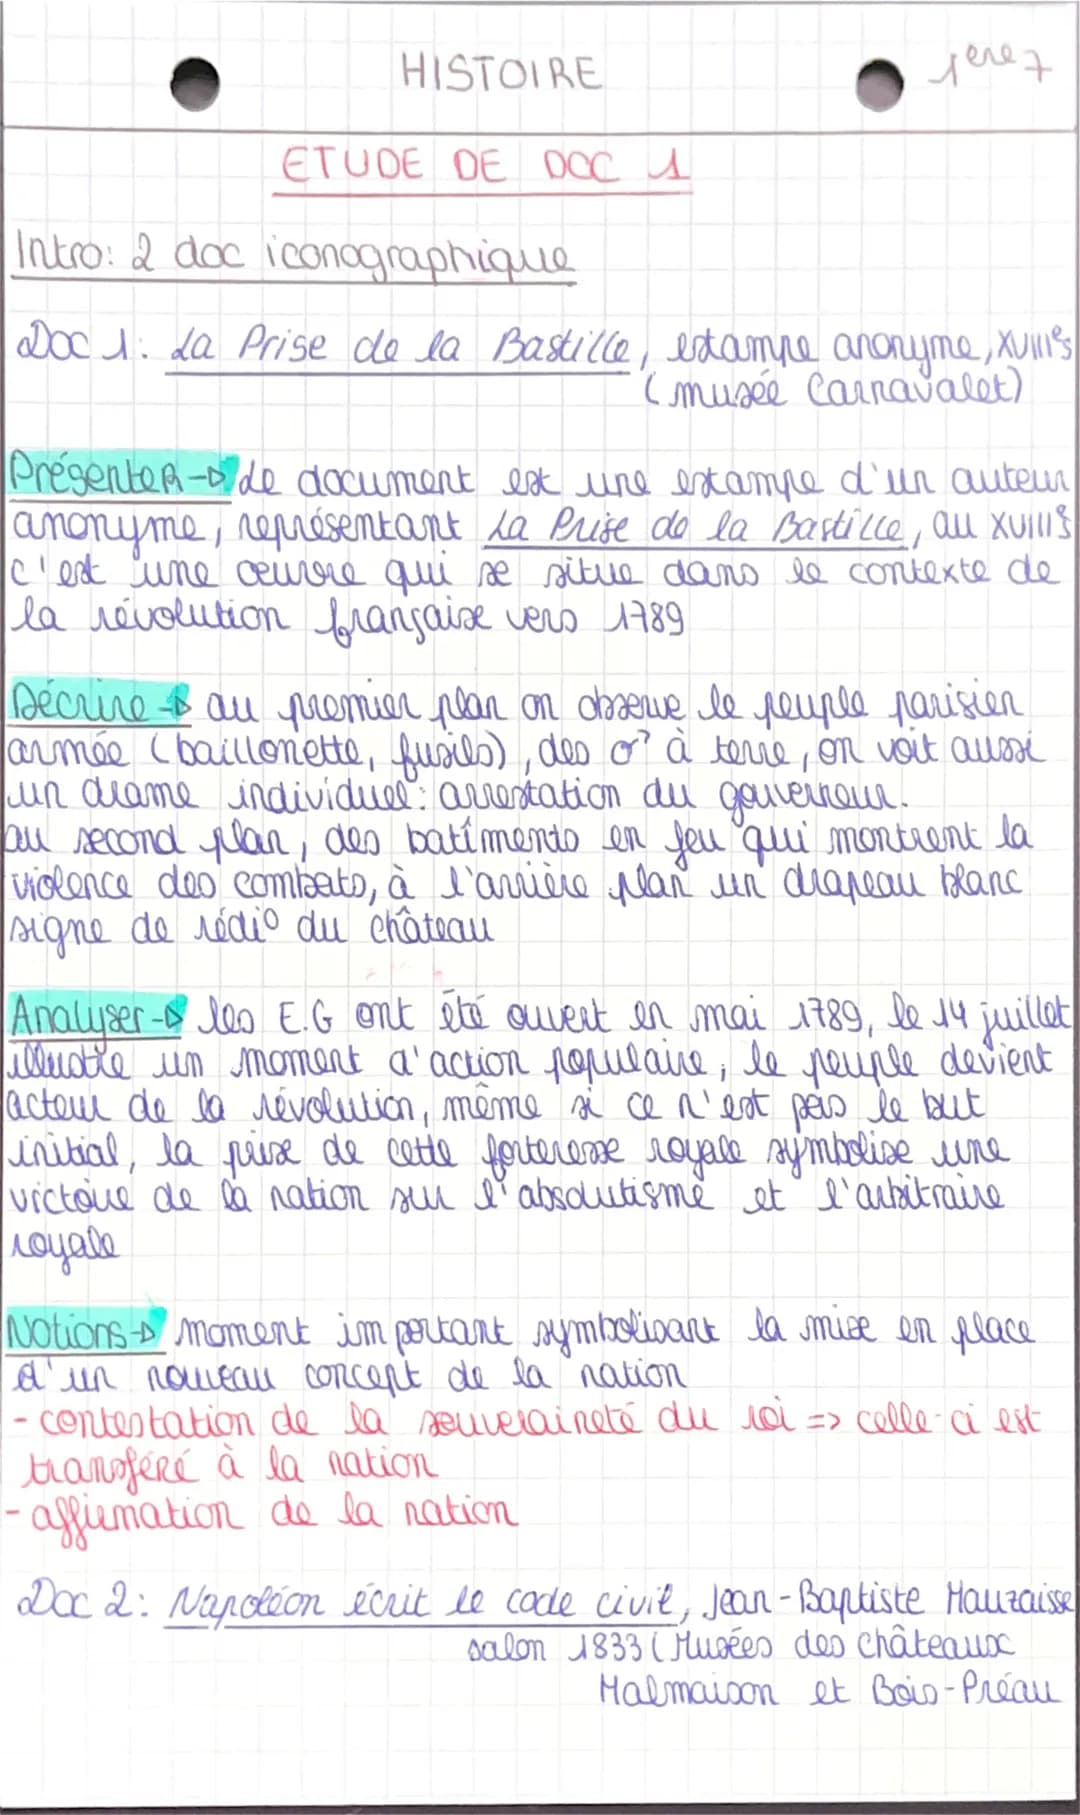 HISTOIRE
1ere 7
ETUDE DE DOC 1
Intro: 2 doc iconographique
Doc 1: La Prise de la Bastille, estampe anonyme, XVIIIes
(musée Carnavalet)
Présenter → Le document est une estampe d'un auteur
anonyme, représentant La Prise de la Bastille, au XVIIIs
c'est une œuvre qui se situe dans le contexte de
la révolution française vers 1789
Décrire → au premier plan on observe le peuple parisien
armée (baillonette, fusils), des à terre, on voit aussi
un drame individuel: arrestation du gouverneur.
au second plan, des batîments en feu qui montrent la
violence des combats, à l'arrière plan un drapeau blanc
signe de rédio du château
Analyser → les E.G ont été ouvert en mai 1789, le 14 juillet
illustre un moment d'action populaire, le peuple devient
acteur de la révolution, même si ce n'est pas le but
initial, la prise de cette forteresse royale symbolise une
victoire de la nation sur l'absolutisme et l'arbitraire
royale
Notions → moment important symbolisant la mise en place
d'un nouveau concept de la nation
- contestation de la souveraineté du roi => celle-ci est
transféré à la nation
- affirmation de la nation
Doc 2: Napoléon écrit le code civil, Jean-Baptiste Mauzaisse
salon 1833 (Musées des châteaux
Malmaison et Bois-Préau